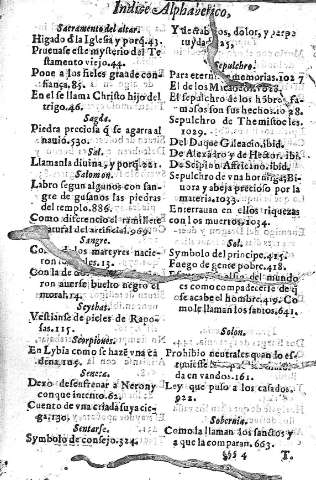 Indice Alphabetico,
Sacramento del altar.
Higado d la Iglesia y porq̃.43.
Prueuase este mysterio del Te
stamento viejo.44.
Pone a los fieles grande con-
fiança.85.
En el se llama Christo hijo del
trigo.46.
Sagda.
Piedra preciosa q̃ se agarra al
nauio.530.
Sal.
Llamanla diuina, y porq̃.221.
Salomon.
Labro segun algunos con san-
gre de gusanos las piedras
del templo.886.
Como diferencio el ramillete
natural del artificial.969.
Sangre.
martyres nacie-
ron
Con la de
ron auerse buelto negro el
moral.14.
Scythas.
Vestianse de pieles de Rapo-
sas.115.
Scorpiones.
En Lybia como se hazẽ vna ca
dena.105.
Seneca.
Dexo desenfrenar a Neron y
con que intento.62.
Cuento de vna criada suya cie-
ga.130.
Sentarse.
Symbolo de consejo.324.
Y de trabajos, dolor, y
Sepulchro.
Para eternizar memorias.102 7
El de los
El sepulchro de los hõbres fa-
mosos son sus hechos.1028.
Sepulchro de Themistocles.
1029.
Del Duque Galeacio, ibid.
De Alexãdro y de Hestor. ibid.
De Scipion Africano. ibid.
Sepulchro de vna hormiga, Bi-
uora y abeja precioso por la
materia.1033.
Enterrauan en ellos riquezas
con los muertos.1034.
Sol.
Symbolo del principe.415.
Fuego de gente pobre.418.
del mundo
es como compadecerse de q̃
ose acabe el hombre.419. Co
mo le llaman los santos.641.
Solon.
Prohibio neutrales quando es-
tuuiesse
da en vandos.161.
Ley que puso a los casados.
922.
Soberuia.
Como la llaman los sanctos y
a que la comparan.663.
§§§ 4 T.